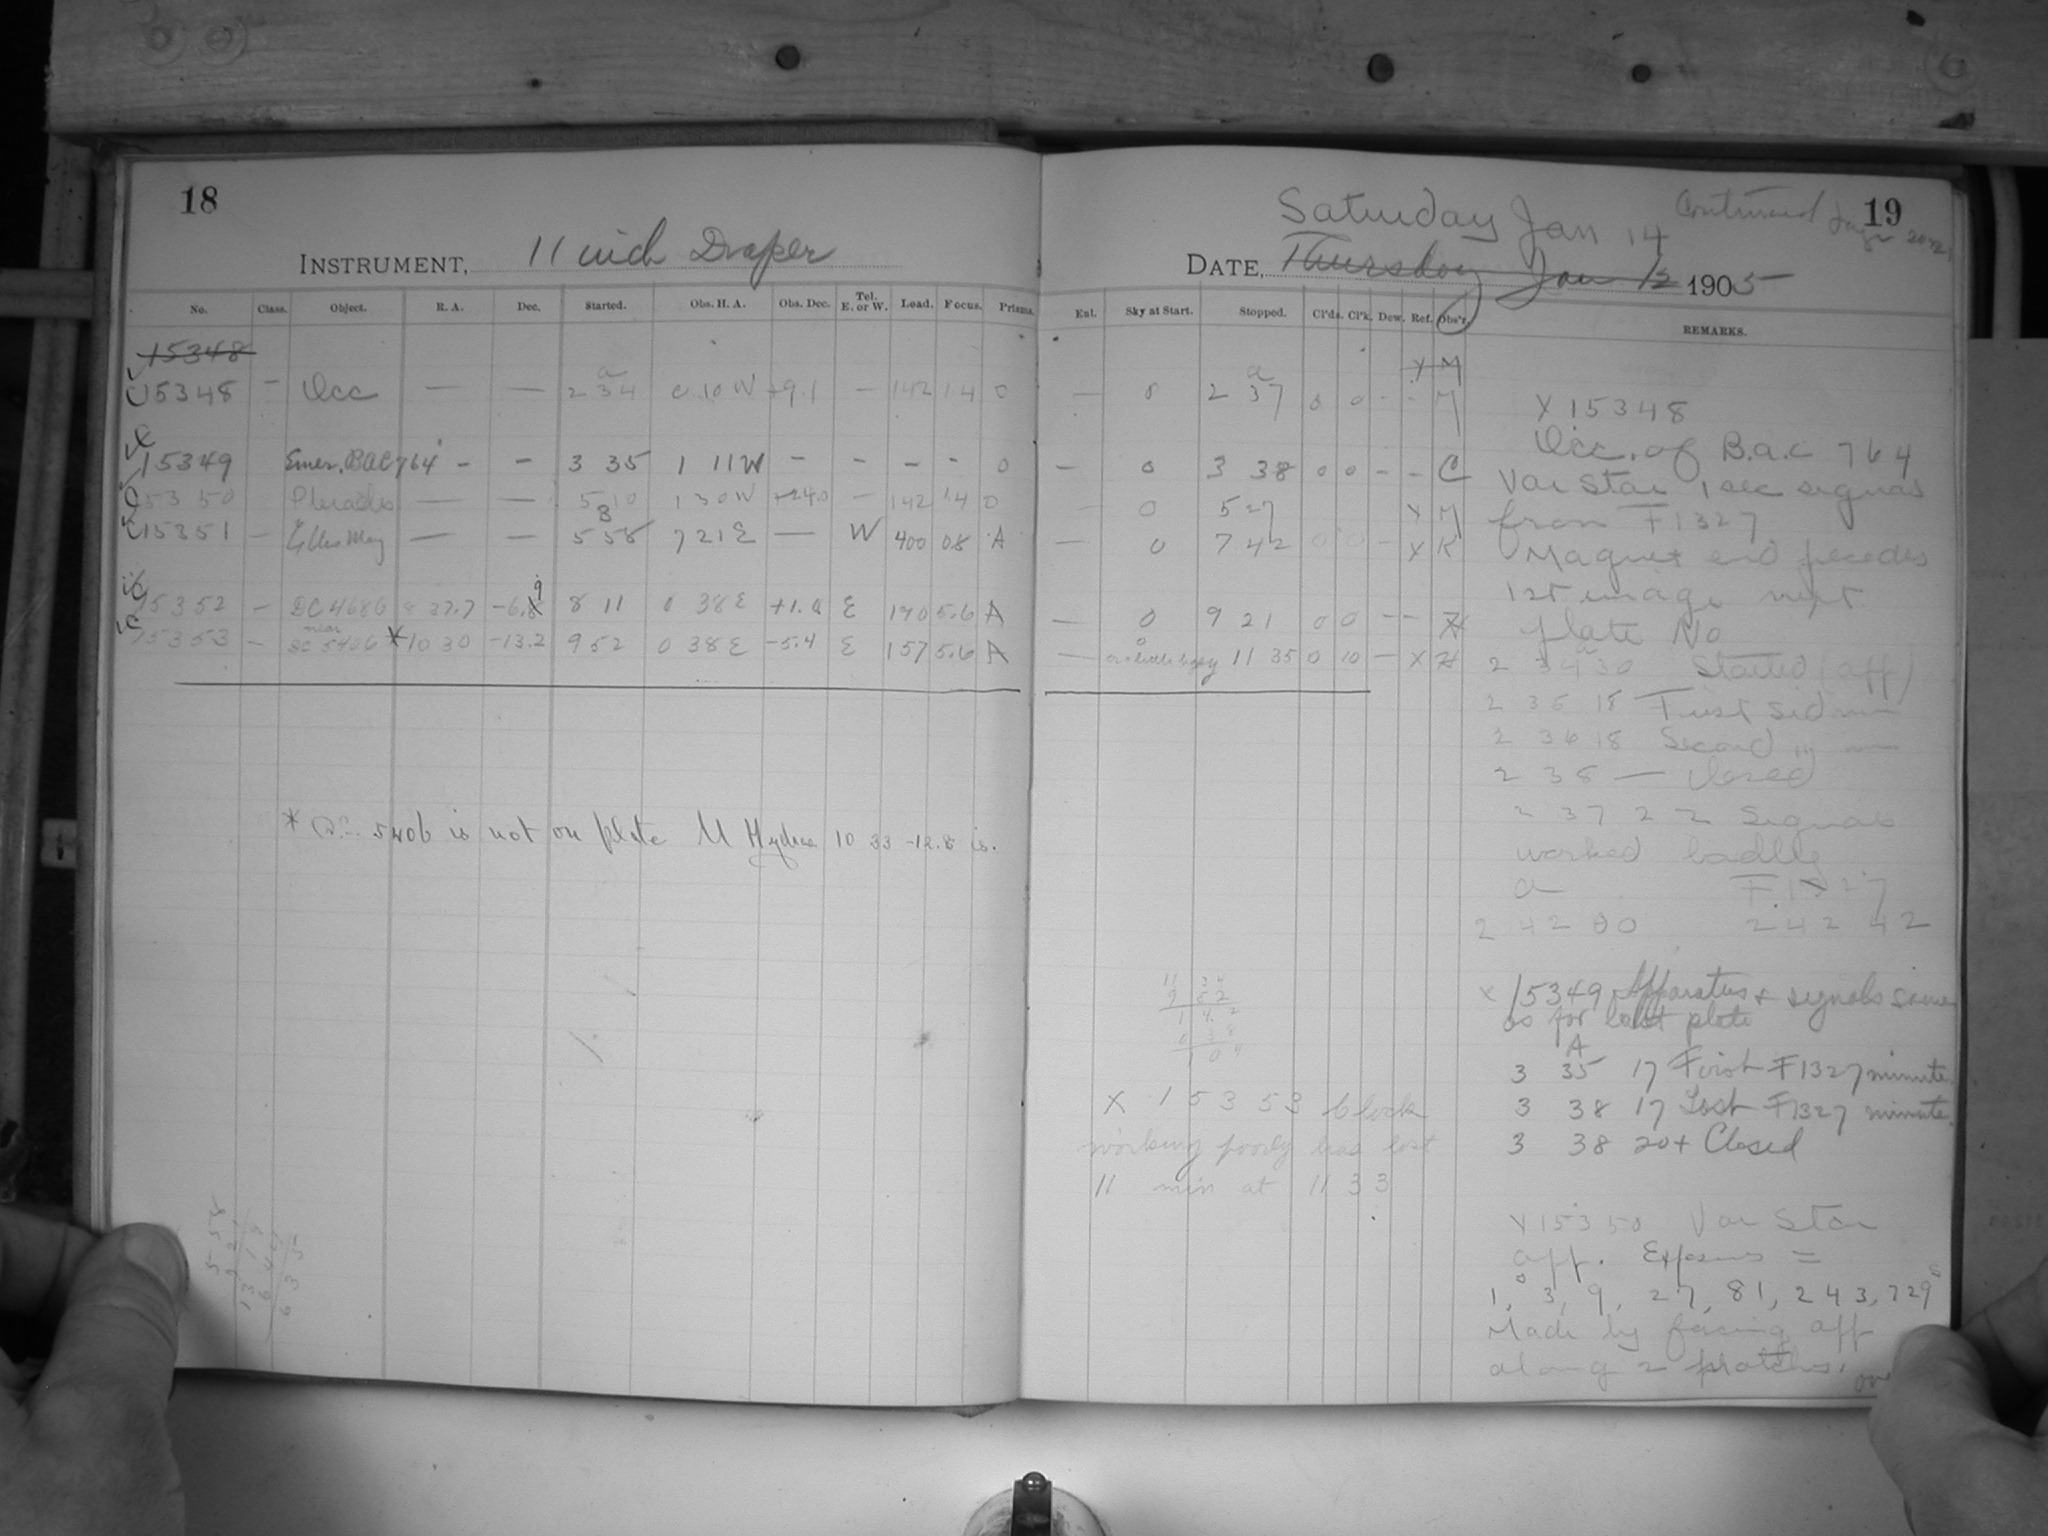 18
INSTRUMENT, 11 inch Draper
No. Class. Object. R. A. Dec. Started. Obs. H. A. Obs. Dec. Tel. E. or W. Load. Focus. Prisms.
15348
15348 — Occ — — 2 34 0 10 W +9.1 — 142 1.4 0
15349 Emer. BAC 764 - - 3 35 1 11 W - - - - 0
15350 Pleiades — — 5 10 1 30 W +24.0 — 142 1.4 0
15351 — — — 5 58 7 21 E — W 400 08 A
15352 — DC 4686 8 37.7 -6.9 8 11 0 38 E +1.0 E 190 5.6 A
15353 — near DC 5406 * 10 30 -13.2 9 52 0 38 E -5.4 E 157 5.6 A
* D.C. 5406 is not on plate U Hydrae 10 33 -12.8 is.
5 58
19
Continued
Saturday Jan 14
DATE, Thursday Jan 12 1905
Ext. Sky at Start. Stopped. Cl'ds. Cl'k. Dew. Ref. Obs'r. REMARKS.
X M
— 0 2 37 0 0 - - M
— 0 3 38 0 0 - - C
— 0 5 27 X M
— 0 7 42 0 0 - X K
— 0 9 21 0 0 - - H
— 0 11 35 0 10 — X H
X 15348
Occ. of B.a.c 764
Var Star 1 sec signas
from F1327
Magnet end precedes
1st image next
plate No
2 34 30 Started (app)
2 35 18 First Sid min
2 36 18 Second
2 38 — Closed
2 37 22 Signas
worked badlly
a F1327
2 42 00 2 42 42
11 34
9 52
1 42
0 38
1 04
x 15349 Apparatus + signals same
as for last plate
A
3 35 17 First F1327 minute
3 38 17 Last F1327 minute
3 38 20+ Closed
X 15353 Clock
working poorly has lost
11 min at 11 33
X 15350 Var Star
app. Exposures =
1, 3, 9, 27, 81, 243, 729 s
Made by facing app
along 2
over